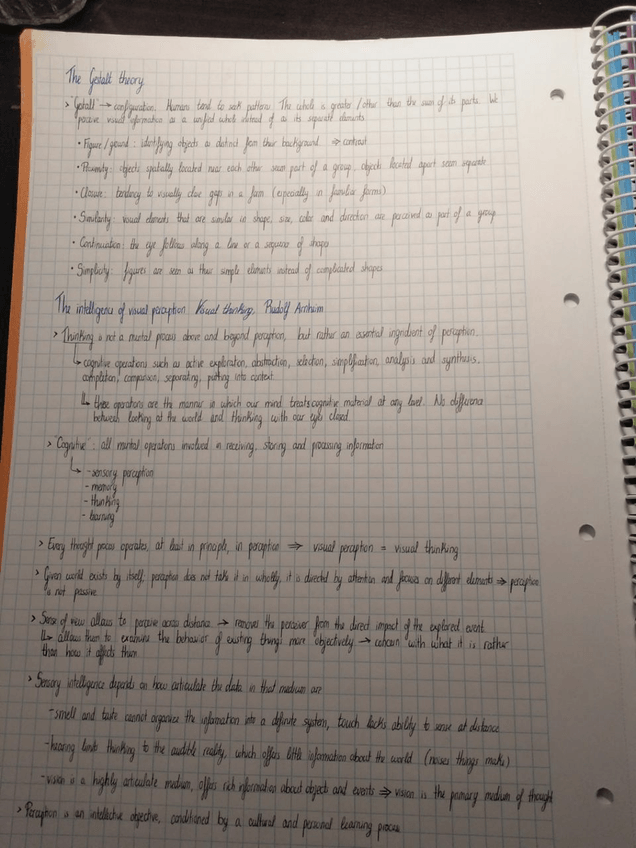 The Gestalt theory
> "Gestalt" → configuration. Humans tend to seek patterns. The whole is greater / other than the sum of its parts. We
perceive visual information as a unified whole instead of as its separate elements
• Figure/ground: identifying objects as distinct from their background ⇒ contrast
• Proximity: objects spatially located near each other seen part of a group, objects located apart seen separate
• Closure: tendency to visually close gaps in a form (especially in familiar forms)
• Similarity: visual elements that are similar in shape, size, color and direction are perceived as part of a group
• Continuation: the eye follows along a line or a sequence of shapes
• Simplicity: figures are seen as their simple elements instead of complicated shapes
The intelligence of visual perception Visual thinking, Rudolf Arnheim
> Thinking is not a mental process above and beyond perception, but rather an essential ingredient of perception.
↳ cognitive operations such as active exploration, abstraction, selection, simplification, analysis and synthesis,
completion, comparison, separating, putting into context
↳ these operations are the manner in which our mind treats cognitive material at any level. No difference
between looking at the world and thinking with our eyes closed.
> "Cognitive": all mental operations involved in receiving, storing and processing information
↳ - sensory perception
- memory
- thinking
- learning
> Every thought process operates, at least in principle, in perception ⇒ visual perception = visual thinking
> Given world exists by itself, perception does not take it in wholly, it is directed by attention and focuses on different elements ⇒ perception
is not passive
> Sense of view allows to perceive across distance → removes the perceiver from the direct impact of the explored event
↳ allows them to examine the behavior of existing things more objectively → concern with what it is rather
than how it affects them
> Sensory intelligence depends on how articulate the data in that medium are
- smell and taste cannot organize the information into a definite system, touch lacks ability to sense at distance
- hearing limits thinking to the audible reality, which offers little information about the world (noises things make)
- vision is a highly articulate medium, offers rich information about objects and events ⇒ vision is the primary medium of thought
> Perception is an intellective objective, conditioned by a cultural and personal learning process